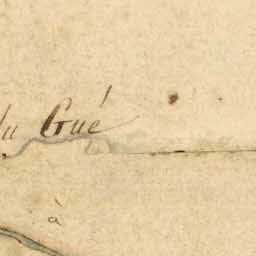 du Gué
à